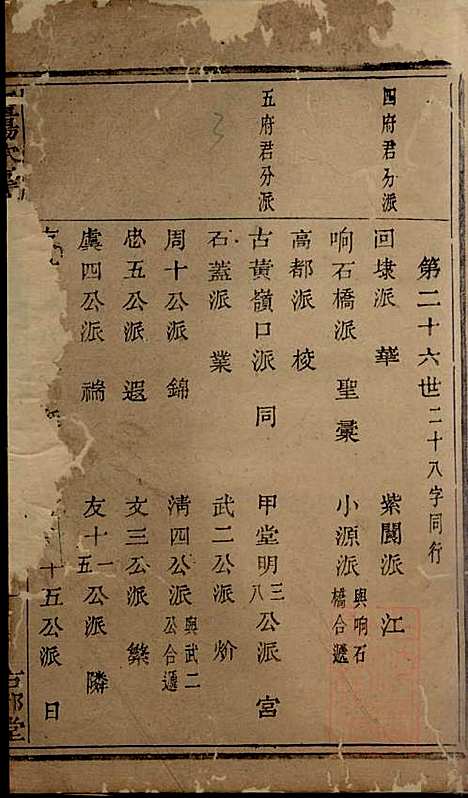 第二十六世二十八字同行
四府君分派
回埭派 華 紫閬派 江
响石橋派 聖橐 小源派與响石橋合遞
高都派 棱
五府君分派
古黃嶺口派 同 甲堂明三八公派 宮
石蓋派 業 武二公派 炌
周十公派 錦 清四公派與武二公合遞
忠五公派 遐 文三公派 繁
虞四公派 瑞 友十一五公派 隣
十五公派 日